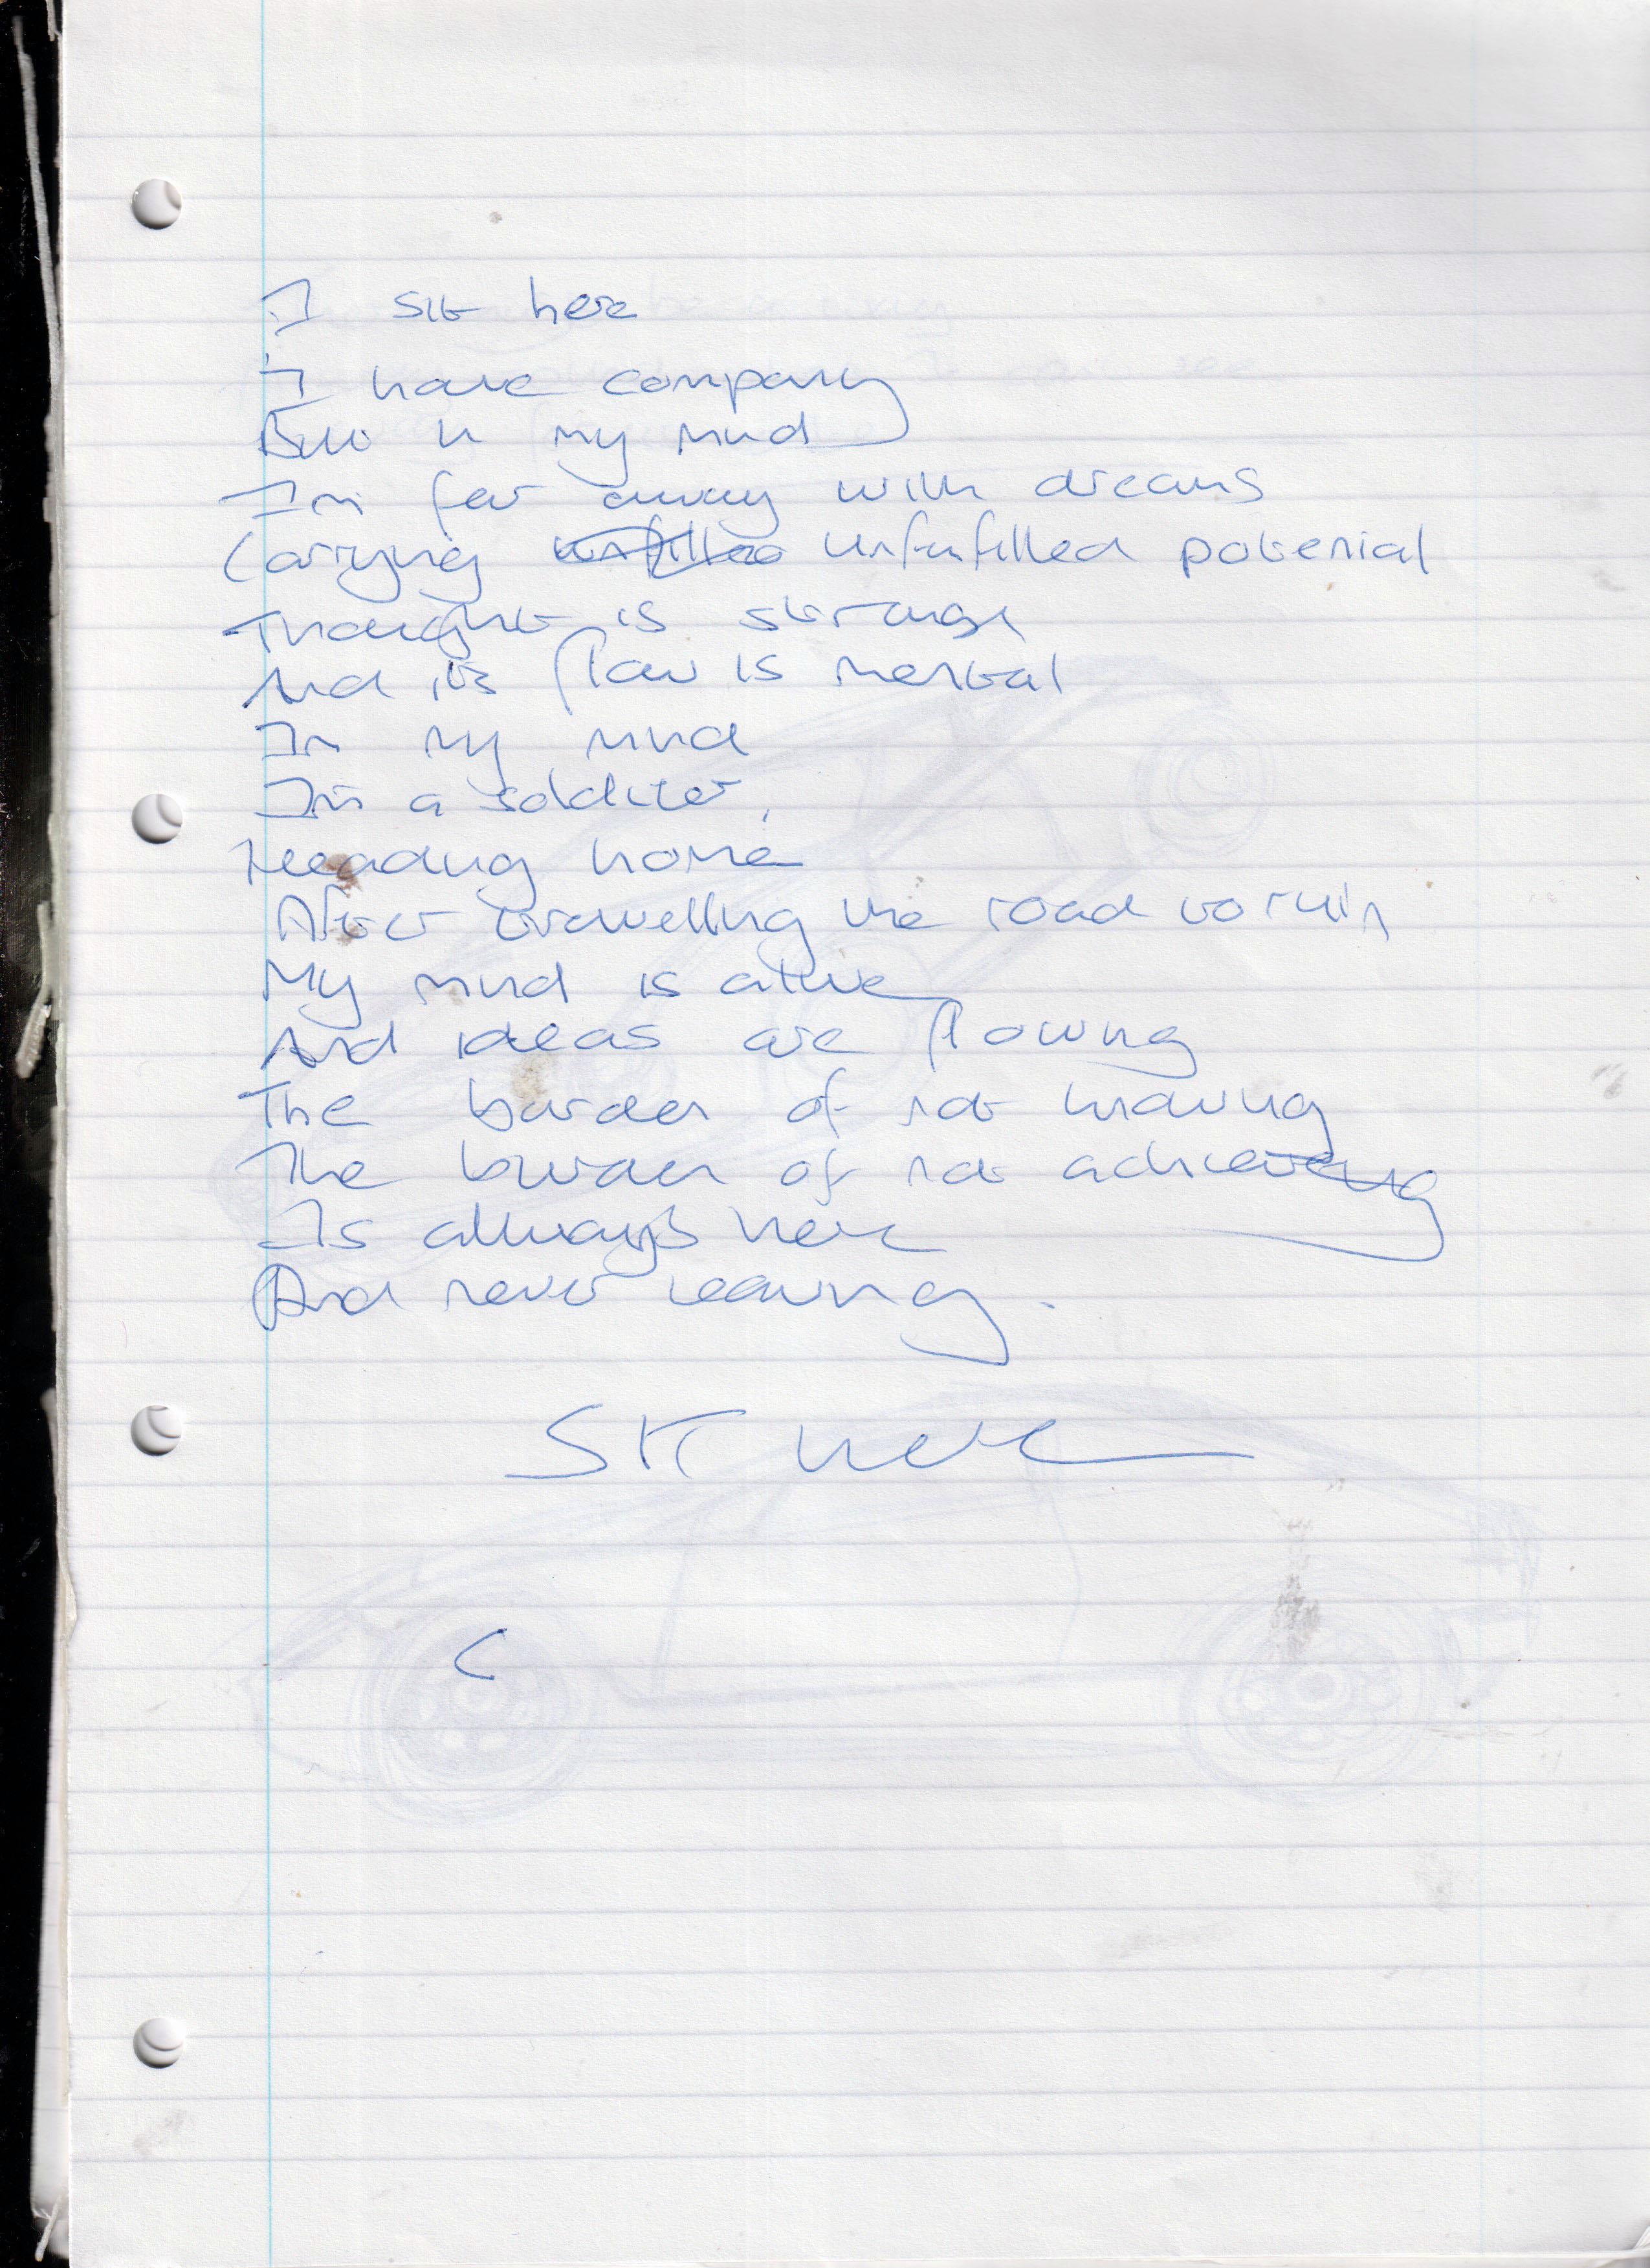 I sit here
I have company
But in my mind
Im far away with dreams
Carrying unfufilled potenial
Thought is strange
And its flow is mental
In my mind
Im a solditer,
Heading home
After travelling the road to ruin
My mind is alive
And ideas are flowing
The burden of not knowing
The burden of not achieveing
Is always here
And never leaving.
SIT here
C